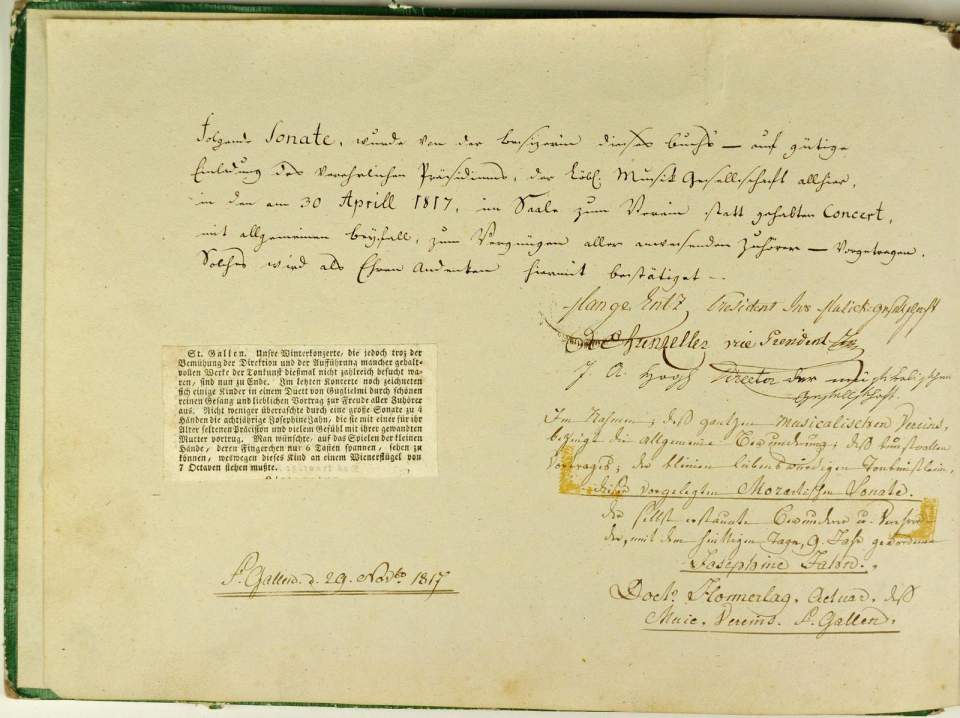 Folgende Sonate, wurde von der besizerin dieses buchs — auf gütige
Einladung des verehrlichen Präsidiums, der Löbl. Musik Gesellschaft allhier,
in den am 30 Aprill 1817, im Saale zum Verein statt gehabten Concert,
mit allgemeinen beyfall, zum Vergnügen aller anwesenden Zuhörer — Vorgetragen.
Solches wird als Ehren Andenken hiermit bestätiget —
President
vice President
J. A. Director der musikalischen
Gesellschaft.
St. Gallen. Unsre Winterkonzerte, die jedoch troz der
Bemühung der Direktion und der Aufführung mancher gehalt-
vollen Werke der Tonkunst diesmal nicht zahlreich besucht wa-
ren, sind nun zu Ende. Im letzten Konzerte noch zeichneten
sich einige Kinder in einem Duett von Guglielmi durch schönen
reinen Gesang und lieblichen Vortrag zur Freude aller Zuhörer
aus. Nicht weniger überraschte durch eine große Sonate zu 4
Händen die achtjährige Josephine Jahn, die sie mit einer für ihr
Alter seltenen Präcision und vielem Gefühl mit ihrer gewandten
Mutter vortrug. Man wünschte, auf das Spielen der kleinen
Hände, deren Fingerchen nur 6 Tasten spannen, sehen zu
können, weswegen dieses Kind an einem Wienerflügel von
7 Octaven stehen mußte.
Im Nahmen, deß gantzen musicalischen Vereins,
bezeugt die allgemeine Bewunderung, deß kunstvollen
Vortrages, der kleinen liebenswürdigen Tonkünstlerin,
vorgelegten Mozartischen Sonate.
der selbst erstaunte Bewunderer u.
der, mit dem heuttigen Tage, 9. Jahr gewordenen
Josephine
St. Gallen. d. 29. Novbr 1817
Doctr. Actuar. deß
Music. Vereins. St. Gallen.